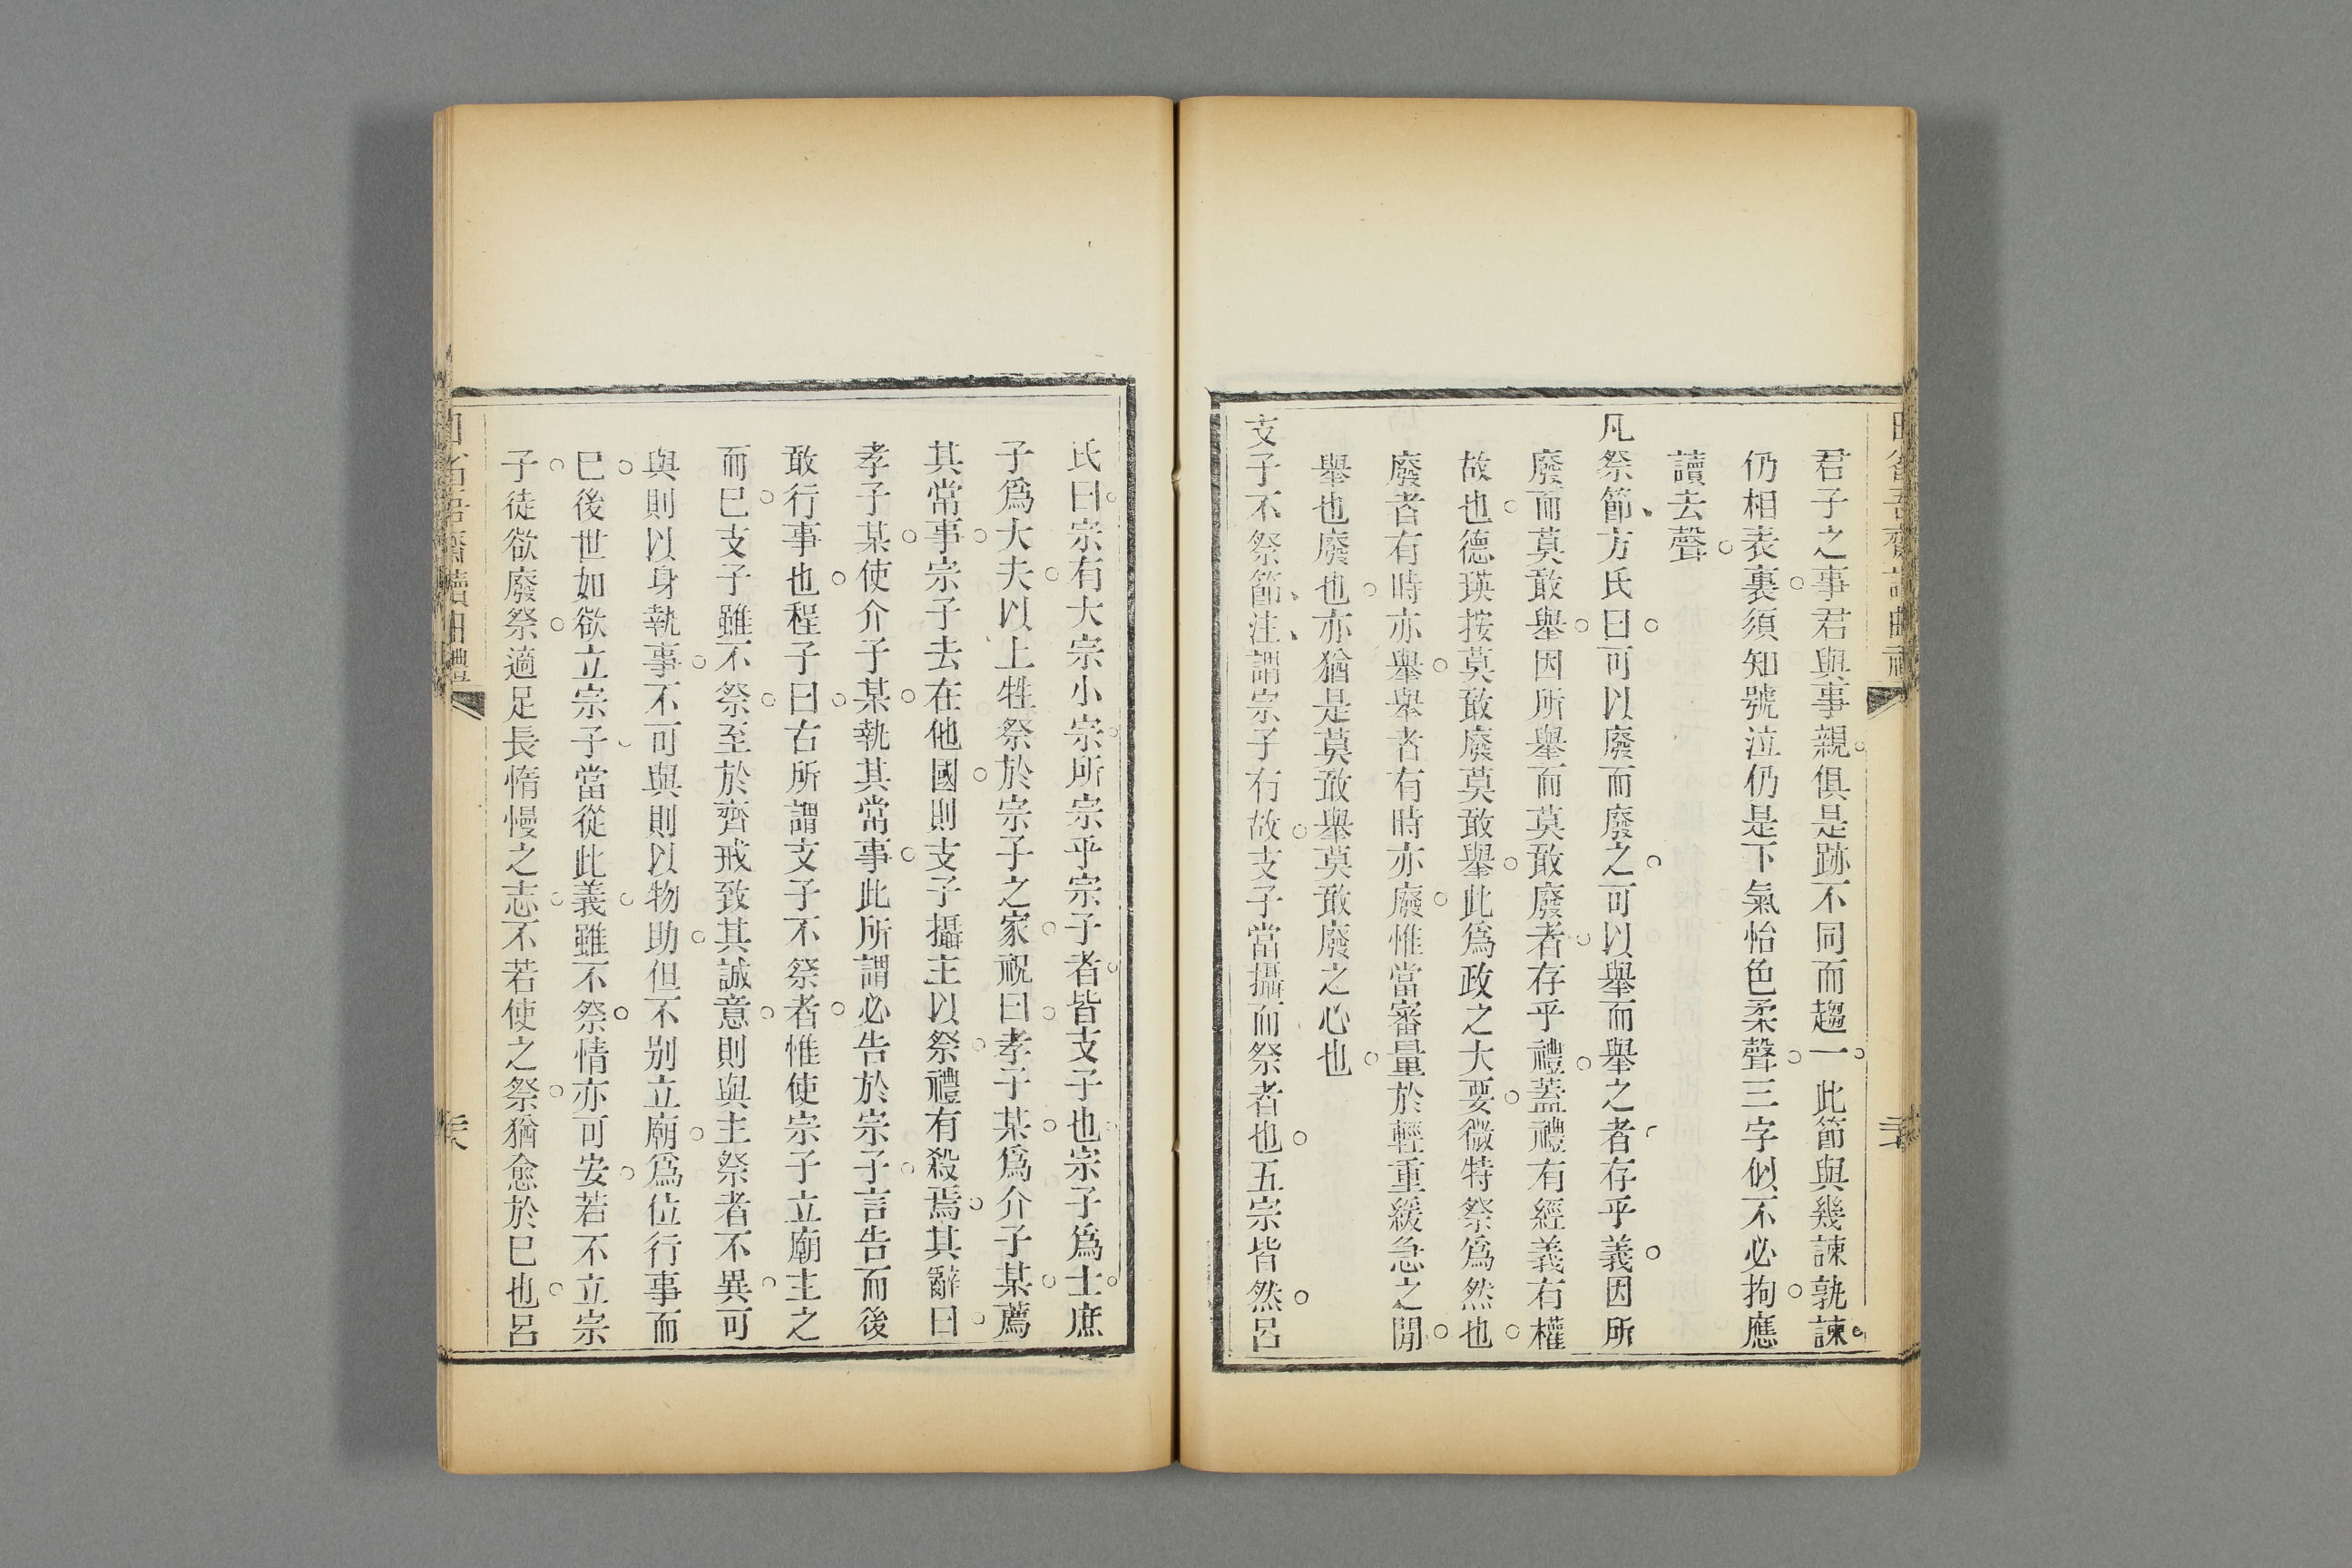 君子之事君與事親俱是跡不同而趨一此節與幾諫孰諫
仍相表裏須知號泣仍是下氣怡色柔聲三字似不必拘應
讀去聲
凡祭節方氏曰可以廢而廢之可以舉而舉之者存乎義因所
廢而莫敢舉因所舉而莫敢廢者存乎禮蓋禮有經義有權
故也德瑛按莫敢廢莫敢舉此爲政之大要微特祭爲然也
廢者有時亦舉舉者有時亦廢惟當審量於輕重緩急之閒
舉也廢也亦猶是莫敢舉莫敢廢之心也
支子不祭節注謂宗子有故支子當攝而祭者也五宗皆然呂
氏曰宗有大宗小宗所宗乎宗子者皆支子也宗子爲士庶
子爲大夫以上牲祭於宗子之家祝曰孝子某爲介子某薦
其常事宗子去在他國則支子攝主以祭禮有殺焉其辭曰
孝子某使介子某執其常事此所謂必告於宗子言告而後
敢行事也程子曰古所謂支子不祭者惟使宗子立廟主之
而已支子雖不祭至於齊戒致其誠意則與主祭者不異可
與則以身執事不可與則以物助但不別立廟爲位行事而
已後世如欲立宗子當從此義雖不祭情亦可安若不立宗
子徒欲廢祭適足長惰慢之志不若使之祭猶愈於已也呂